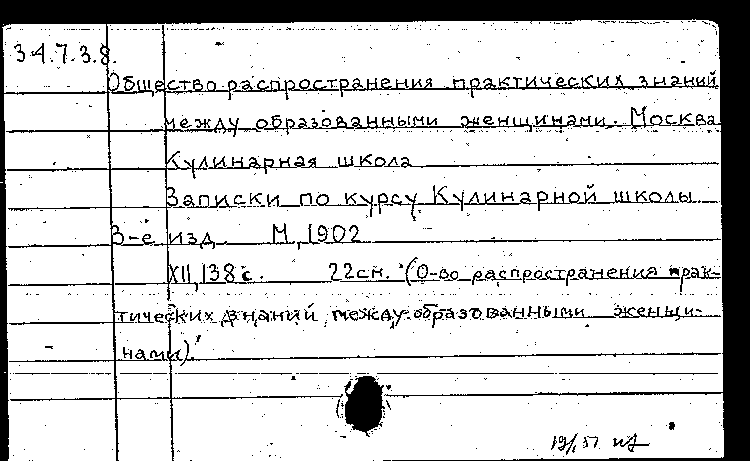 3.4.7.3.8.
Общество распространения практических знаний
между образованными женщинами. Москва
Кулинарная школа
Записки по курсу Кулинарной школы
3-е изд. М, 1902
XII, 138 с. 22 см. (О-во распространения прак-
тических знаний между образованными женщи-
нами).